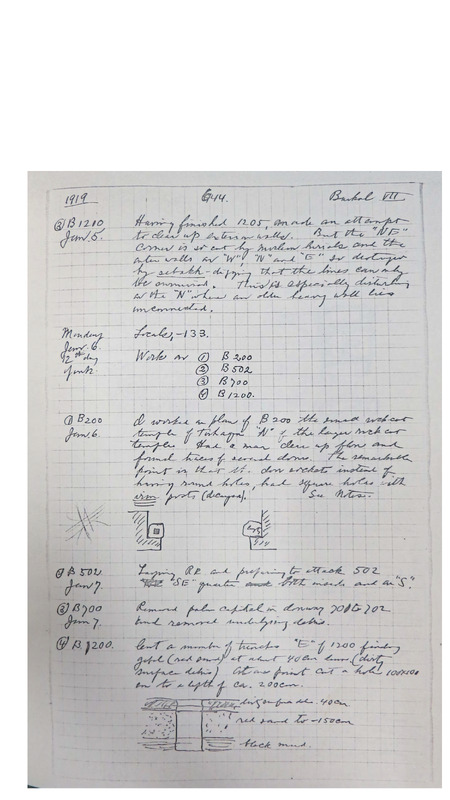 1919 G44. Barkal VII
③ B1200 Having finished 1205, made an attempt
Jan. 5. to clear up exterior walls. But the "NE"
corner is so cut by modern burials and the
outer walls on "W", "N" and "E" so destroyed
by sebakh-digging that the lines can only
be surmised. This is especially disturbing
on the "N" where an older heavy wall lies
unconnected.
Monday Locals, -133.
Jan. 6.
12th day Work on ① B200
of wk. ② B502
③ B700
④ B1200.
① B200 I worked on plan of B200 the small rock cut
Jan. 6. temple of Taharqa "N" of the larger rock cut
temple. Had a man clear up floor and
found traces of second door. The remarkable
point is that the door sockets instead of
having round holes, had square holes with
iron posts (decayed). See Notes.
② B502 Laying RR and preparing to attack 502
Jan 7. "SE" quarter both inside and on "S".
③ B700 Removed palm capital in doorway 701 to 702
Jan 7. and removed underlying debris.
④ B1200. Cut a number of trenches "E" of 1200 finding
gebel (red sand) at about 40 cm down (dirty
surface debris). At one point cut a hole 100x100
cm to a depth of ca. 200cm.
40cm.
red sand to -150cm
black mud.